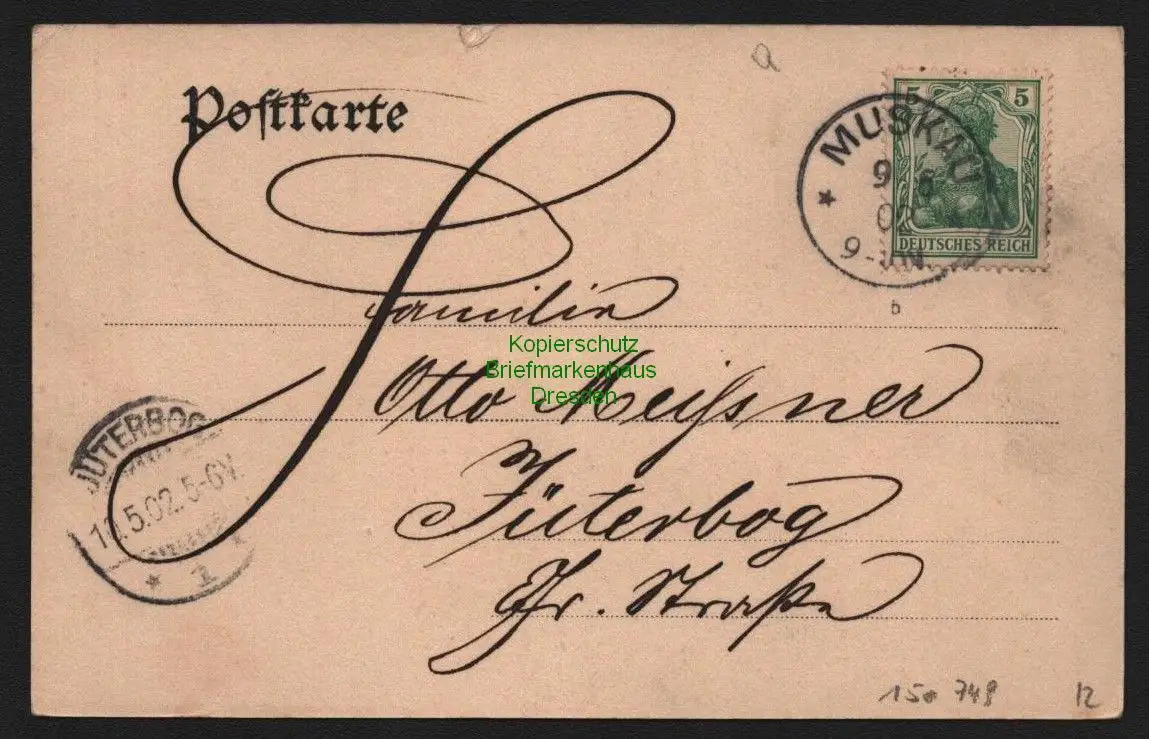 a
Postkarte
5 5
DEUTSCHES REICH
MUSKAU
9 5
02
9-
b
Familie
Kopierschutz
Briefmarkenhaus
Dresden
Otto Meißner
Jüterbog
Str. Straße
JÜTERBOG
10.5.02. 5-6V.
* 1
150 748
12